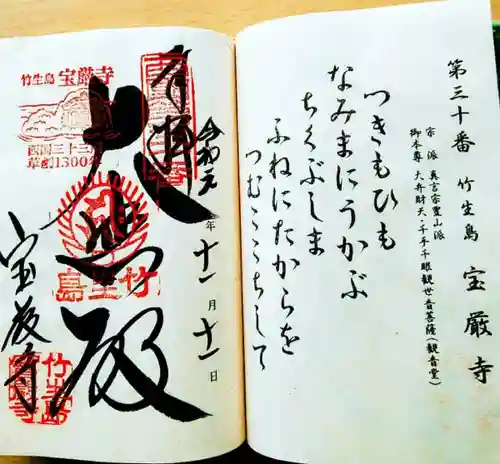 第三十番 竹生島 宝厳寺
宗派 真言宗豊山派
御本尊 大弁財天・千手千眼観世音菩薩(観音堂)
つきもひも
なみまにうかぶ
ちくぶしま
ふねにたからを
つむここちして
奉拝
令和元年十一月十一日
大悲殿
宝厳寺
竹生島 宝厳寺
西国三十三
草創1300年
竹生島